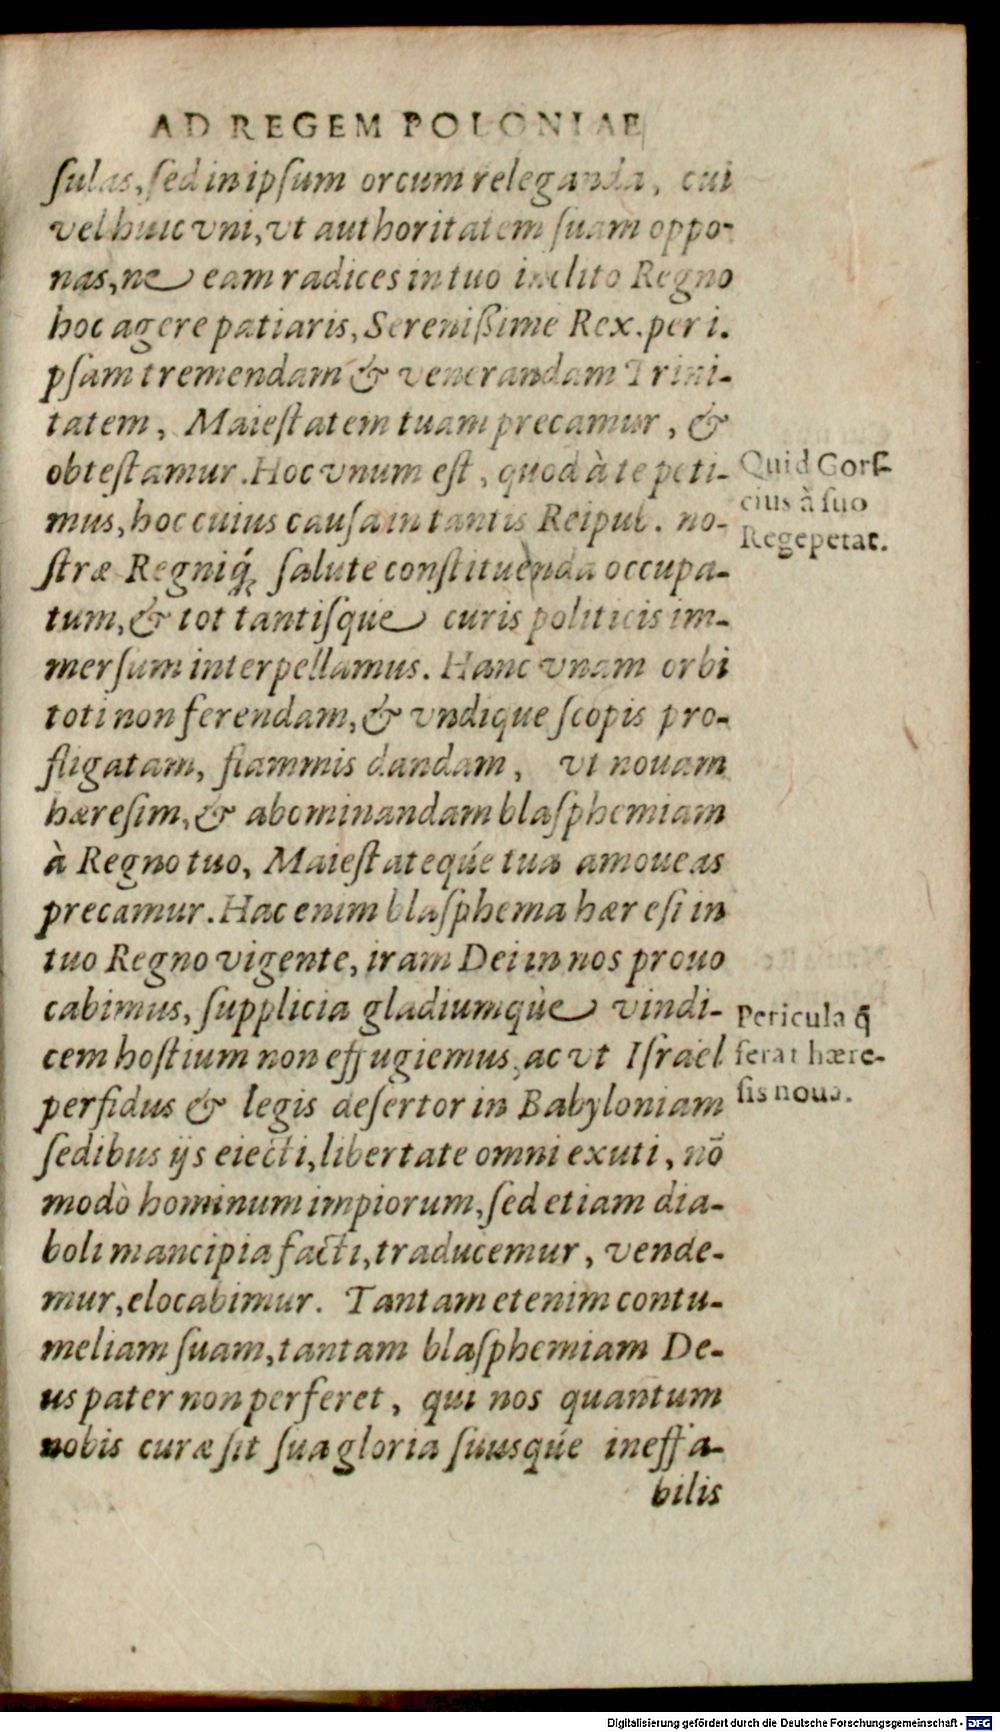 AD REGEM POLONIAE
ſulas, ſed in ipſum orcum releganda, cui
vel huic vni, vt authoritatem ſuam oppo-
nas, ne eam radices in tuo inclito Regno
hoc agere patiaris, Sereniſsime Rex. per i.
pſam tremendam & venerandam Trini-
tatem, Maieſtatem tuam precamur, &
obteſtamur. Hoc vnum eſt, quod à te peti-
mus, hoc cuius cauſa in tantis Reipub. no-
ſtræ Regniq́; ſalute conſtituenda occupa-
tum, & tot tantiſque curis politicis im-
merſum interpellamus. Hanc vnam orbi
toti non ferendam, & vndique ſcopis pro-
fligatam, flammis dandam, vt nouam
hæreſim, & abominandam blaſphemiam
à Regno tuo, Maieſtateqúe tua amoueas
precamur. Hac enim blaſphema hæreſi in
tuo Regno vigente, iram Dei in nos prouo
cabimus, ſupplicia gladiumqùe vindi-
cem hoſtium non effugiemus, ac vt Iſrael
perfidus & legis deſertor in Babyloniam
ſedibus ijs eiecti, libertate omni exuti, nō
modò hominum impiorum, ſed etiam dia-
boli mancipia facti, traducemur, vende-
mur, elocabimur. Tantam etenim contu-
meliam ſuam, tantam blaſphemiam De-
us pater non perferet, qui nos quantum
nobis curæ ſit ſua gloria ſuusqúe ineffa-
bilis
Quid Gorſ-
cius à ſuo
Rege petat.
Pericula q̄
ferat hære-
ſis noua.
Digitalisierung gefördert durch die Deutsche Forschungsgemeinschaft - DFG